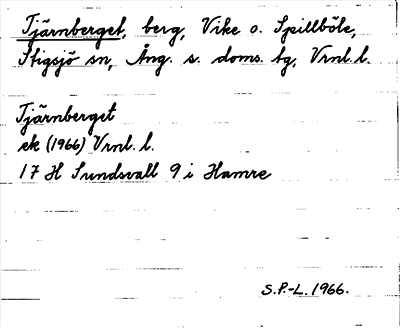 Tjärnberget, berg, Vike o. Spillböle,
Stigsjö sn, Ång. s. doms. tg, Vrnl. l.
Tjärnberget
ek (1966) Vrnl. l.
17 H Sundsvall 9 i Hamre
S.P.-L. 1966.